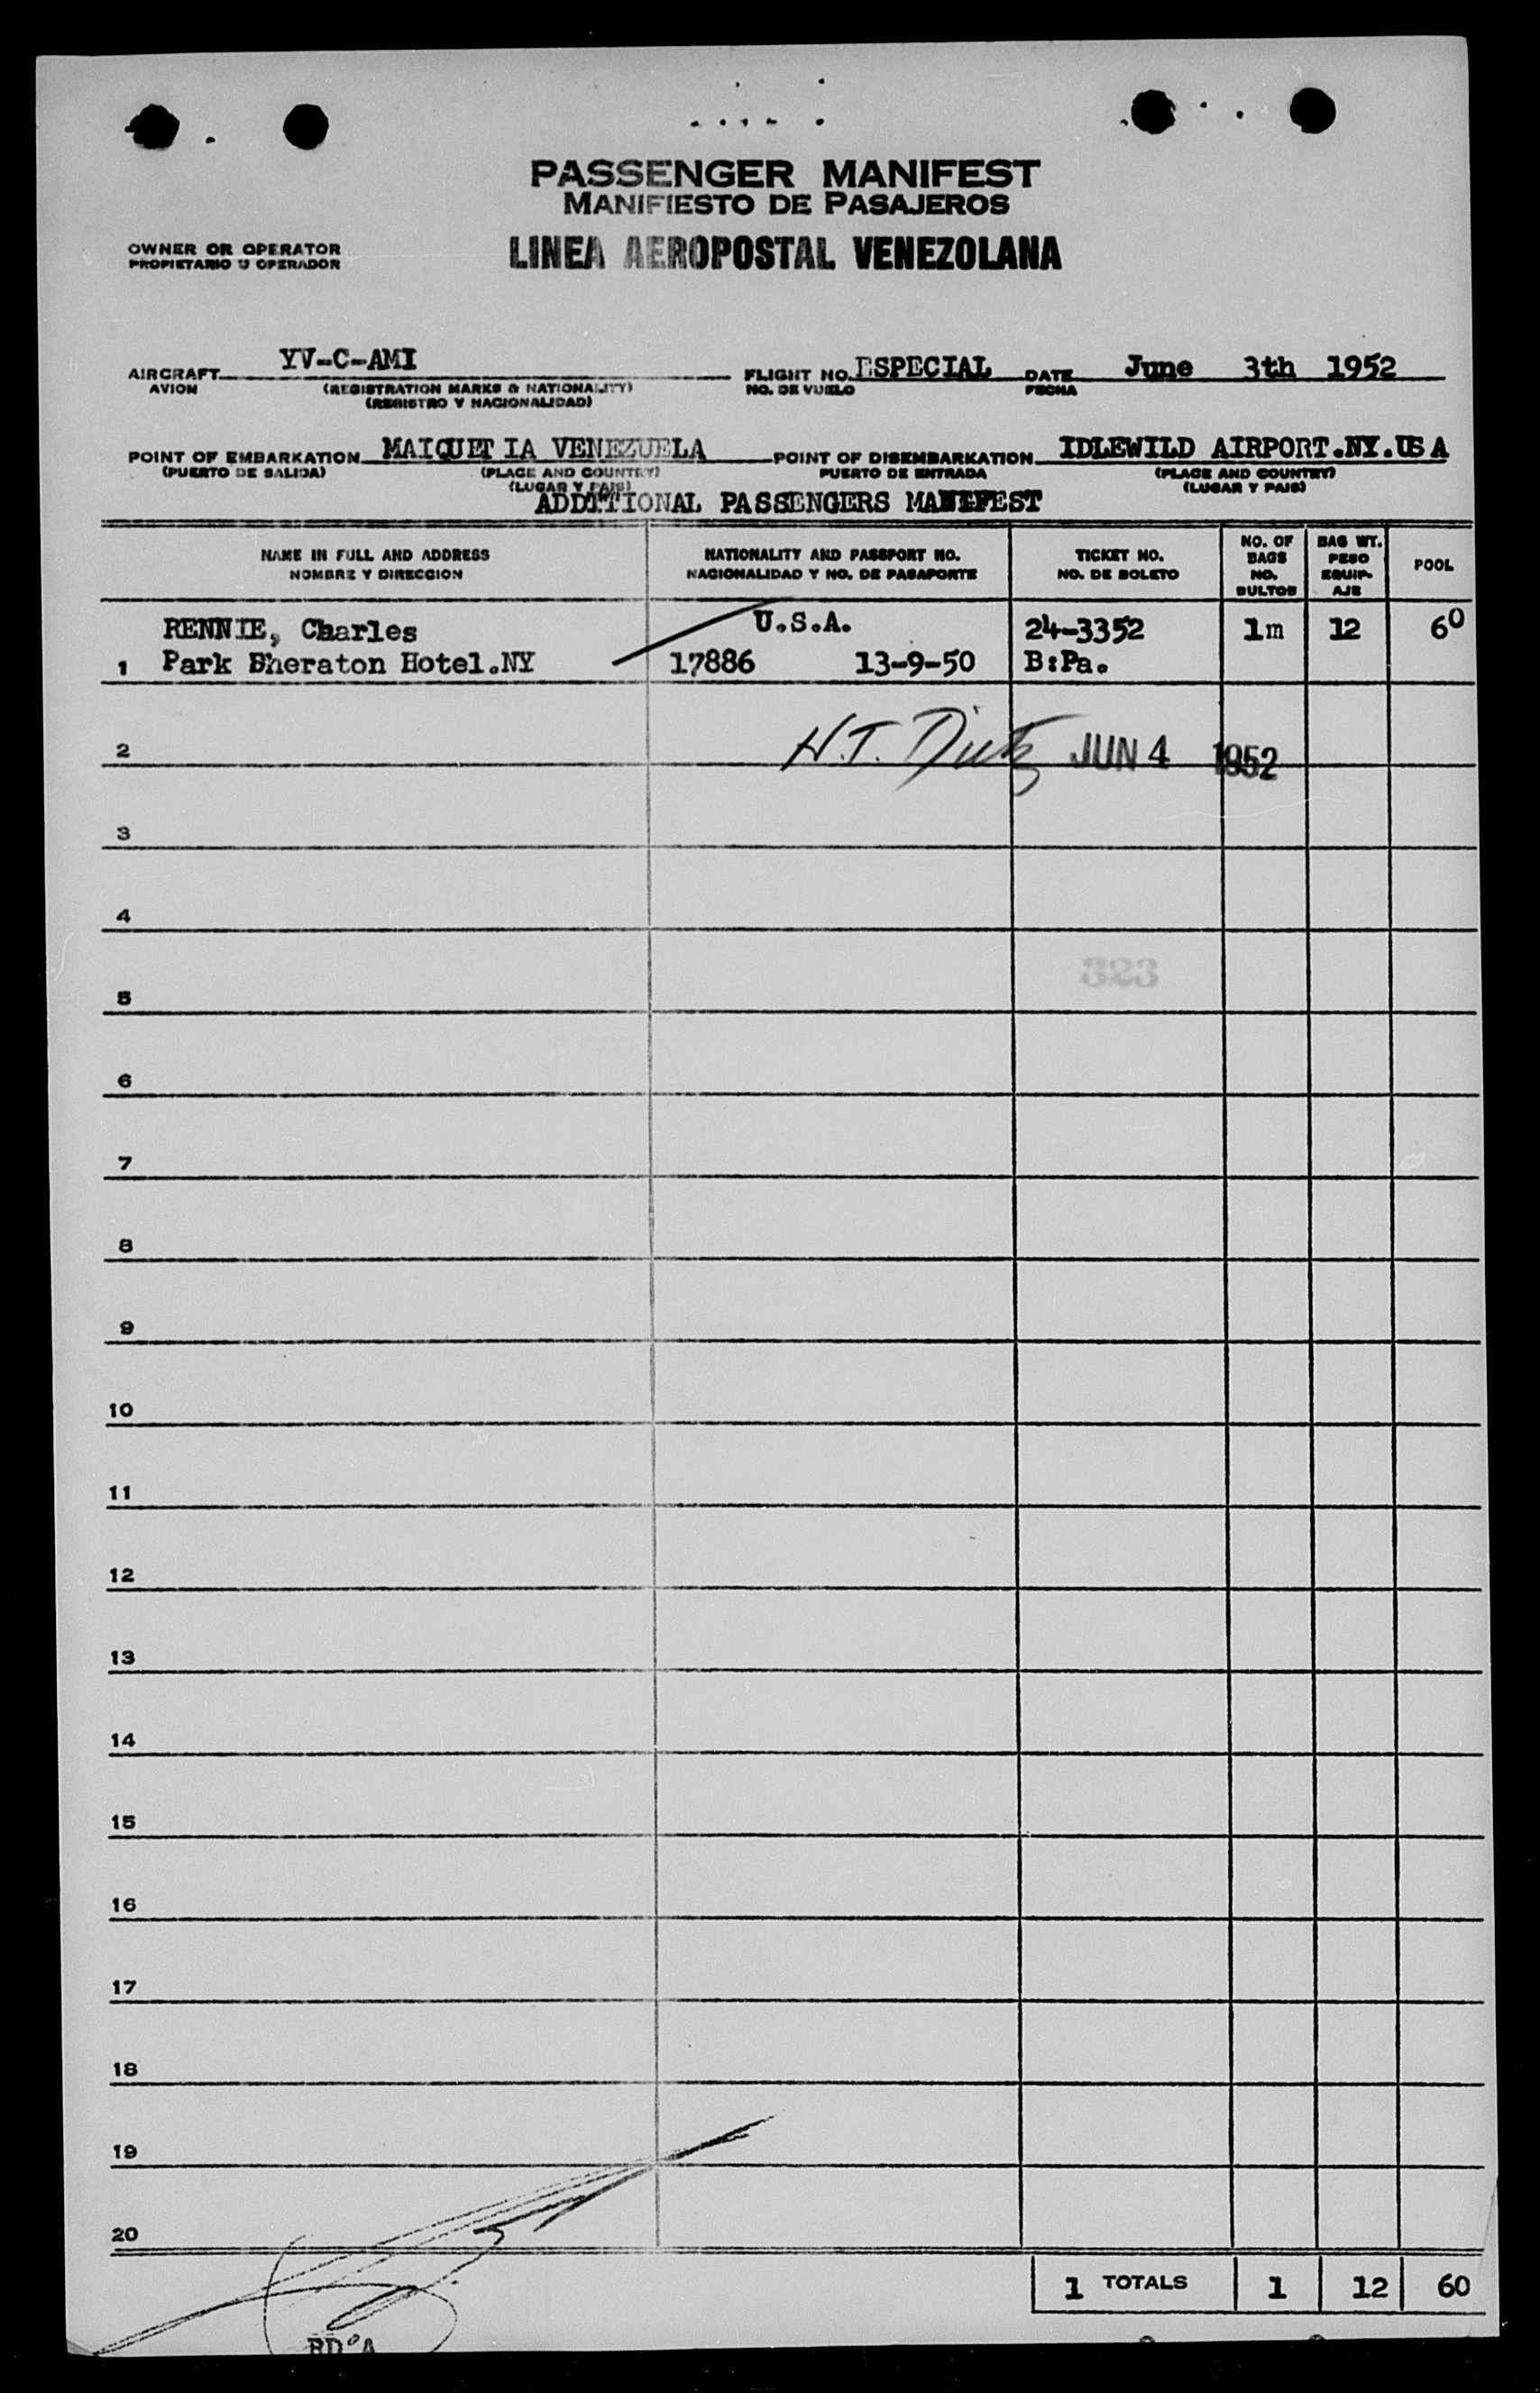 PASSENGER MANIFEST
MANIFIESTO DE PASAJEROS
OWNER OR OPERATOR
PROPIETARIO U OPERADOR
LINEA AEROPOSTAL VENEZOLANA
AIRCRAFT YV-C-AMI FLIGHT NO. ESPECIAL DATE June 3th 1952
AVION (REGISTRATION MARKS & NATIONALITY) NO. DE VUELO FECHA
(REGISTRO Y NACIONALIDAD)
POINT OF EMBARKATION MAIQUET IA VENEZUELA POINT OF DISEMBARKATION IDLEWILD AIRPORT.NY.US A
(PUERTO DE SALIDA) (PLACE AND COUNTRY) PUERTO DE ENTRADA (PLACE AND COUNTRY)
(LUGAR Y PAIS) (LUGAR Y PAIS)
ADDITIONAL PASSENGERS MANIFEST
NAME IN FULL AND ADDRESS NATIONALITY AND PASSPORT NO. TICKET NO. NO. OF BAGS BAG WT. POOL
NOMBRE Y DIRECCION NACIONALIDAD Y NO. DE PASAPORTE NO. DE BOLETO NO. BULTOS PESO EQUIP-AJE
RENNIE, Charles U.S.A. 24-3352 1m 12 60
1 Park Sheraton Hotel.NY 17886 13-9-50 B:Pa.
2 H.T. JUN 4 1952
3
4
323
5
6
7
8
9
10
11
12
13
14
15
16
17
18
19
20
1 TOTALS 1 12 60
RD°A